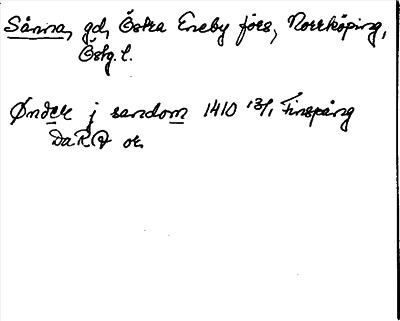 Sånna, gd, Östra Eneby förs, Norrköping,
Östg. l.
Ønder j sandom 1410 13/1 Finspång
DaRA or.